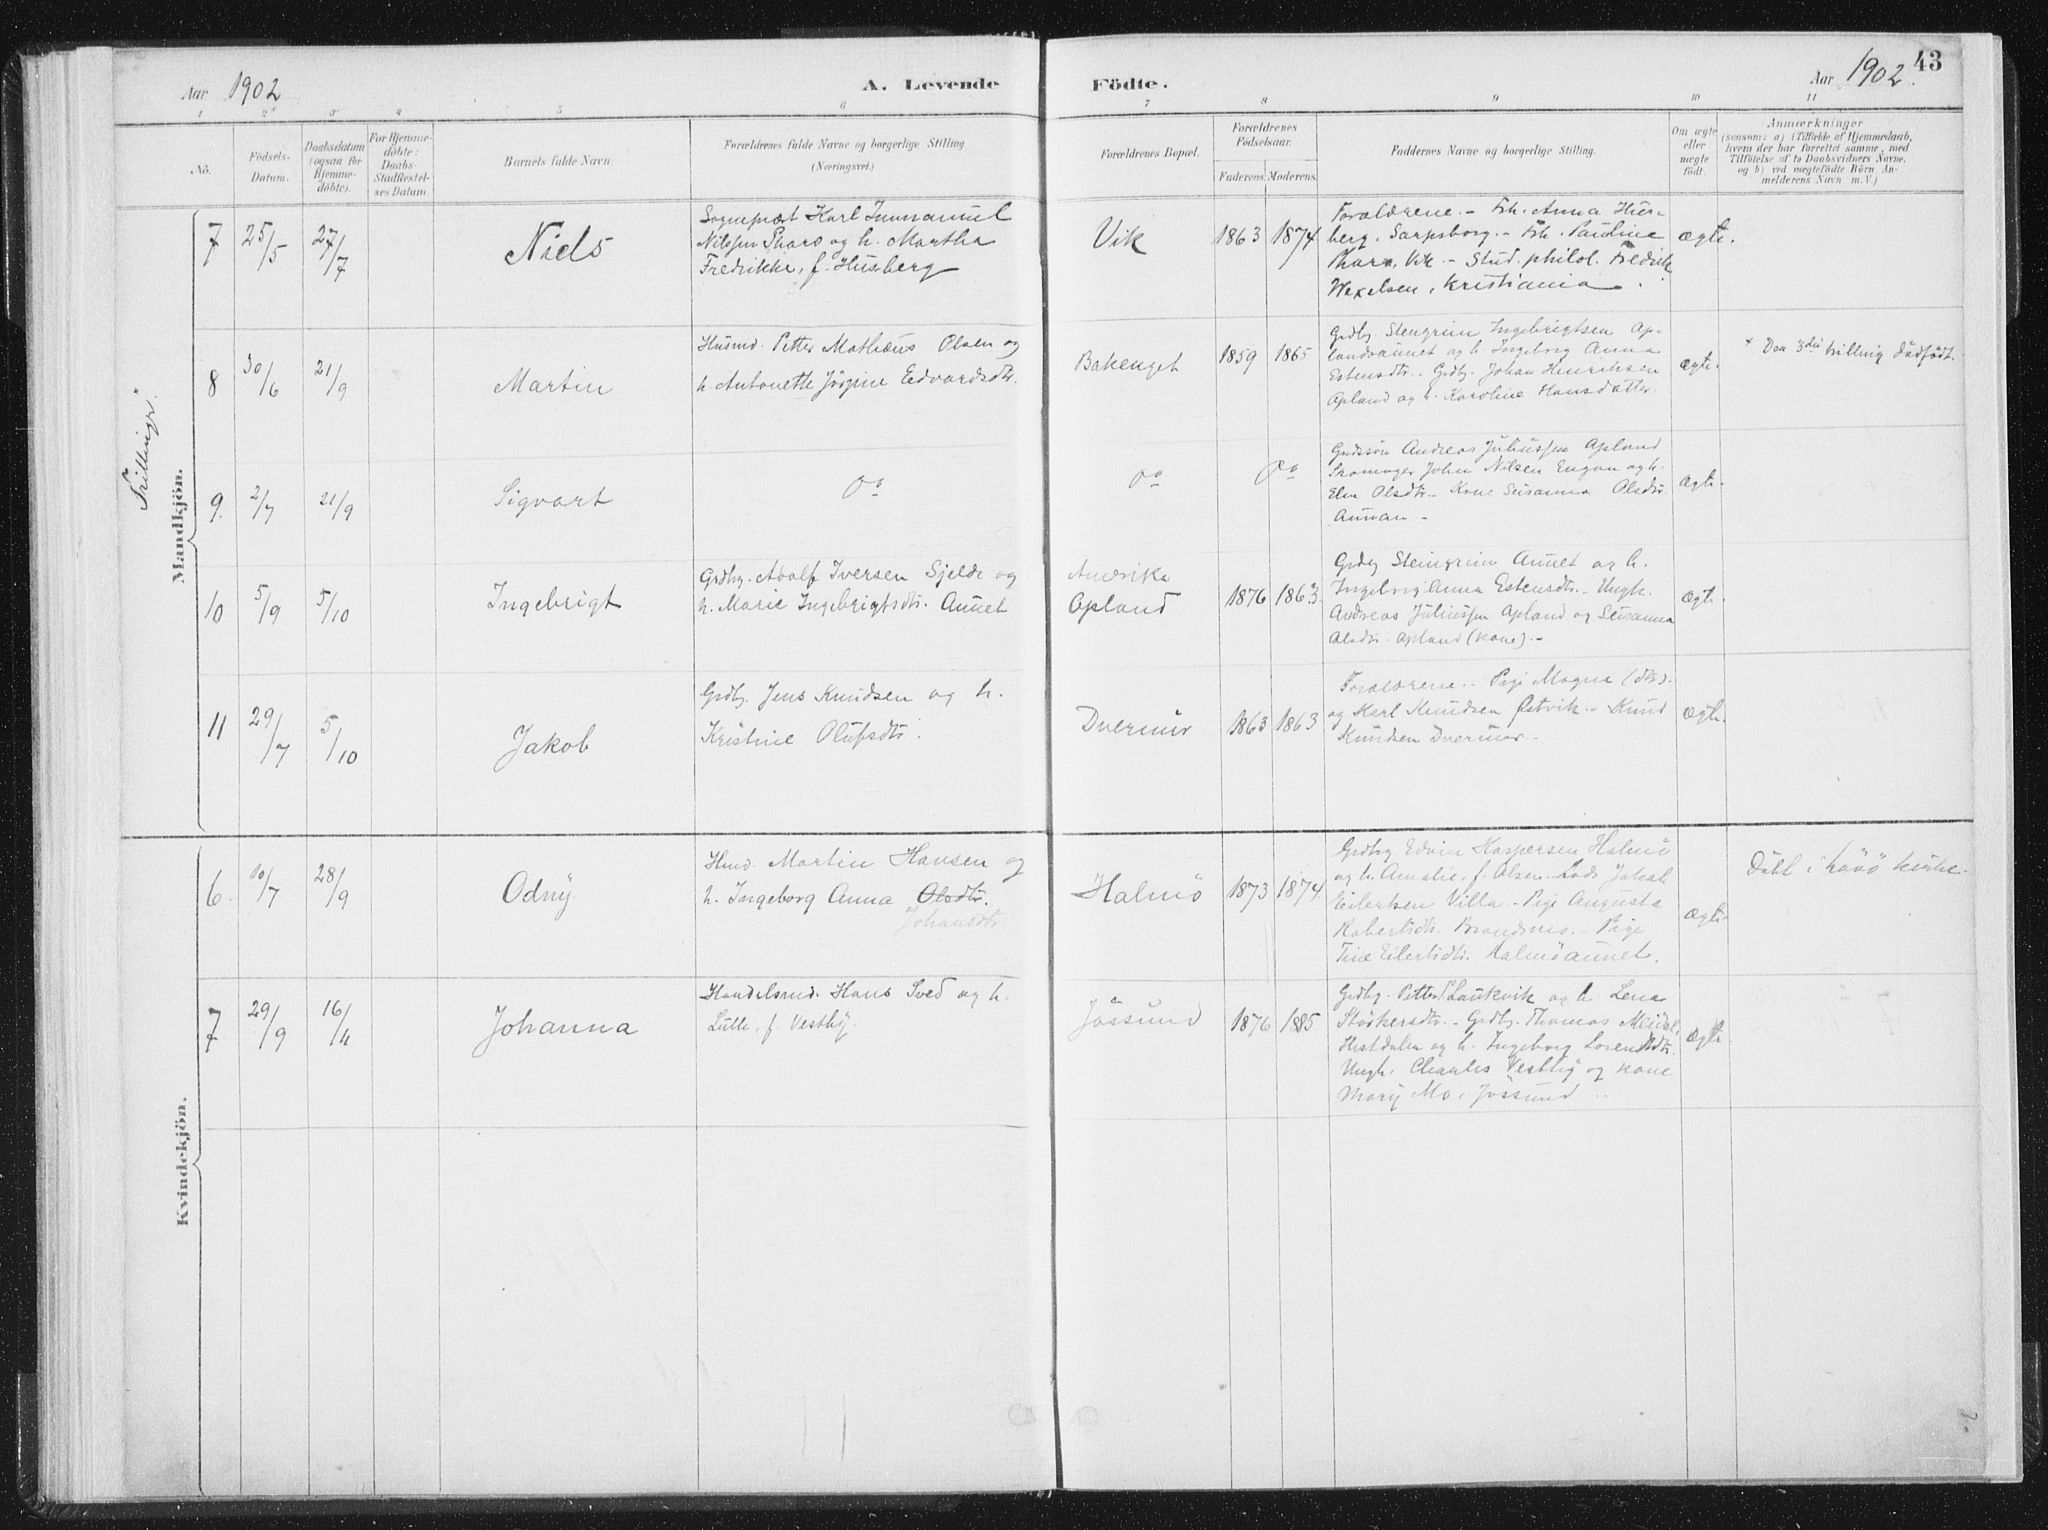 Aar 1902
A. Levende
Födte.
Aar 1902.
43
1 2 3 4 5 6 7 8 9 10 11
No.
Födsels-Datum.
Daabsdatum (ogsaa for Hjemmedöbte).
For Hjemmedöbte: Daabs-Stadfæstelses Datum.
Barnets fulde Navn.
Forældrenes fulde Navne og borgerlige Stilling (Næringsvei.)
Forældrenes Bopæl.
Forældrenes Födselsaar.
Faderens. Moderens.
Faddernes Navne og borgerlige Stilling.
Om ægte eller uægte födt.
Anmærkninger
(saasom: a) i Tilfælde af Hjemmedaab, hvem der har forrettet samme, med Tilföielse af to Daabsvidners Navne, og b) ved uægtefödte Börn Anmelderens Navn m. V.)
Mandkjön.
Trillinger.
7 25/5 27/7 Niels
Sogneprest Karl Immanuel
Nilssen Tharo og h. Martha
Fredrikke, f. Husberg
Vik 1863 1874
Forældrene. - Frk. Anna Hus-
berg, Sarpsborg. - Frk. Pauline
Tharo, Vik. - Stud. philol. Fredrik
Wexelsen, Kristiania.
ægte.
8 30/6 21/9 Martin
Husmd. Petter Mathæus Olsen og
h. Antonette Jörgine Edvardsdtr.
Bakenget 1859 1865
Grdbg. Stengrim Ingebrigtsen Ap-
landsaunet og h. Ingebrig Anna
Estensdtr. - Grdbg. Johan Henriksen
Apland og h. Karoline Hansdatter.
ægte.
* Den 3die trilling dödfödt.
9. 2/7 21/9 Sigvart
Do
Do Do
Grdssön Andreas Juliussen Apland
Skomager John Nilsen Engan og h.
Elen Olsdtr. - Kone Susanna Olsdtr.
Aunan -
ægte.
10 5/9 5/10 Ingebrigt
Grdbg. Adolf Iversen Sjelde og
h. Marie Ingebrigtsdtr. Aunet
Amerika
Apland 1876 1863.
Grdbg Steingrim Aunet og h.
Ingebrig Anna Estensdtr. - Ungk.
Andreas Juliussen Apland og Susanna
Olsdtr. Apland (kone). -
ægte.
11 29/7 5/10 Jakob
Grdbg. Jens Knudsen og h.
Kristine Olufsdtr.
Duermor 1863 1863
Forældrene. - Pige Magna (dtr).
og Karl Knudsen Östvik. - Knud
Knudsen Duermor. -
ægte.
Kvindekjön.
6. 10/7 28/9 Odny
Hmd. Martin Hansen og
h. Ingeborg Anna Olsdtr.
Johansdtr
Halmö 1873 1874
Grdbg Edvin Kaspersen Halmö
og h. Amalie, f. Olsen. Lods Jakob
Eilertsen Villa. - Pige Augusta
Robertsdtr. Brandsnes. - Pige
Tine Eilertsdtr. Halmöaunet.
ægte
Döbt i kirke.
7 29/9 16/11 Johanna
Handelsmd. Hans Sved og h.
Lulle, f. Vestby.
Jössund 1876 1885
Grdbg. Petter Laukvik og h Lena
Störkersdtr. - Grdbg. Thomas
Hestdalen og h. Ingeborg Lorentsdtr.
Ungk. Charles Vestby og kone
Mary Mo, Jössund.
ægte